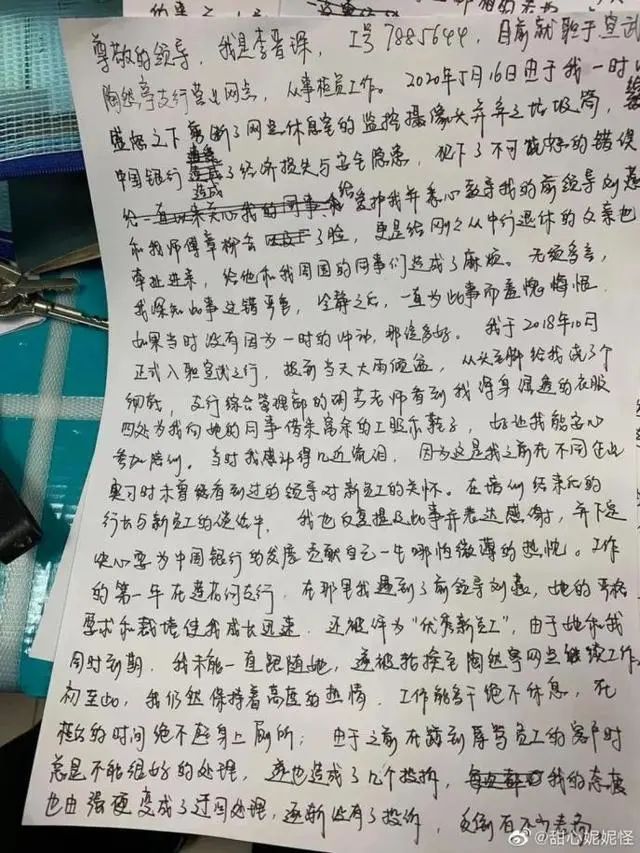 尊敬的领导，我是李晋琛，工号7885644，目前就职于宣武
陶然亭支行营业网点，从事柜员工作。2020年5月16日由于我一时
盛怒之下剪断了网点休息室的监控摄像头并弃之垃圾筒，给
中国银行造成了经济损失与安全隐患，犯下了不可饶恕的错误
给一直以来关心我的同事、给爱护我并悉心教导我的前领导刘燕
和我师傅章柳云丢了脸，更是给刚刚从中行退休的父亲也
牵扯进来，给他和我周围的同事们造成了麻烦。无须多言，
我深知此事过错严重，冷静之后，一直为此事而羞愧悔恨
如果当时没有因为一时的冲动，那该多好。我于2018年10月
正式入职宣武支行，报到当天大雨倾盆，从头到脚给我洗了个
细致，支行综合管理部的老师看到我浑身湿透的衣服
四处为我向她的同事借来富余的工服和鞋子，好让我能安心
参加培训。当时我感动得几近流泪，因为这是我之前在不同企业
实习时未曾经看到过的领导对新员工的关怀。在培训结束后的
行长与新员工的座谈中，我也反复提及此事并表达感谢，并下定
决心要为中国银行的发展贡献自己一生哪怕微薄的热忱。工作
的第一年在支行，在那里我遇到了前领导刘燕，她的严格
要求和栽培使我成长迅速，还被评为“优秀新员工”，由于她和我
同时到期，我未能一直跟随她，遂被轮换至陶然亭网点继续工作
初至此，我仍然保持着高度的热情，工作能多干绝不休息，在
柜台的时间绝不起身上厕所；由于之前在遇到辱骂员工的客户时
总是不能很好的处理，遂也造成了几个投诉，我的态度
也由强硬变成了迂回处理，逐渐没有了投诉，反倒有不少表扬
@甜心妮妮怪